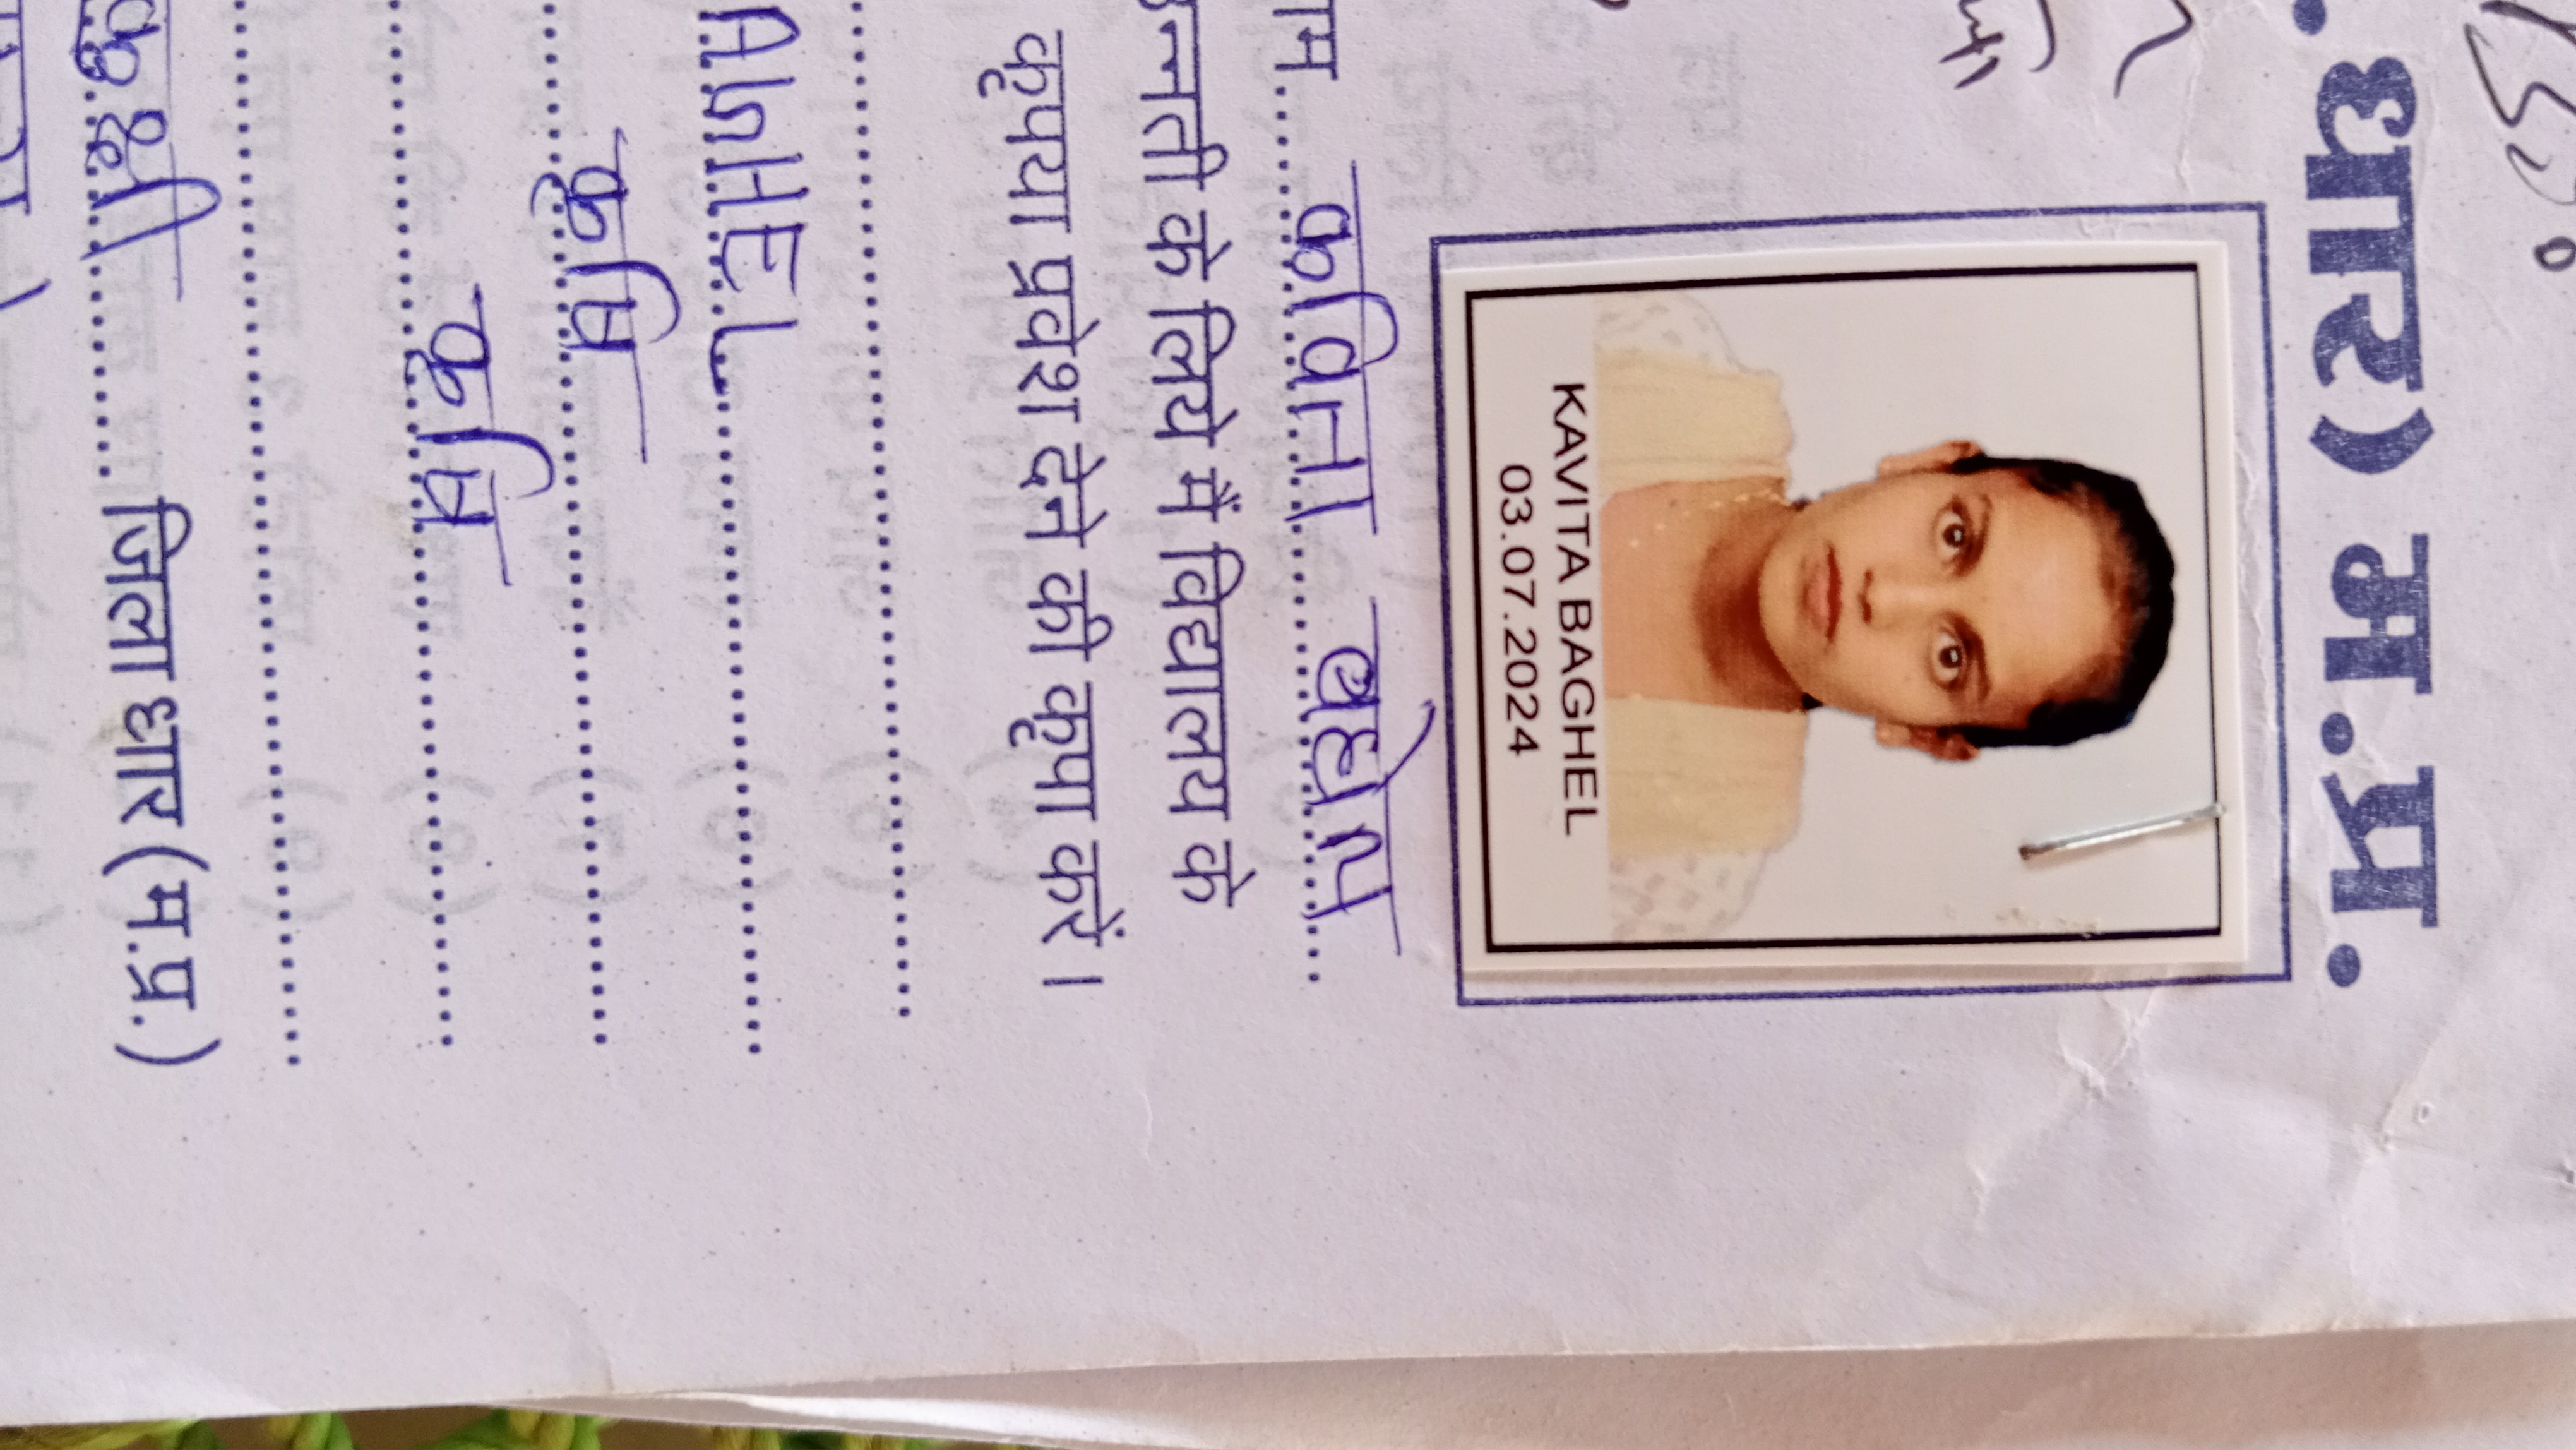 . धार) म.प्र.
KAVITA BAGHEL
03.07.2024
कविता बघेल
उन्नती के लिये मैं विद्यालय के
कृपया प्रवेश देने की कृपा करें।
AGHEL
कृषि
कृषि
जिला धार (म.प्र.)